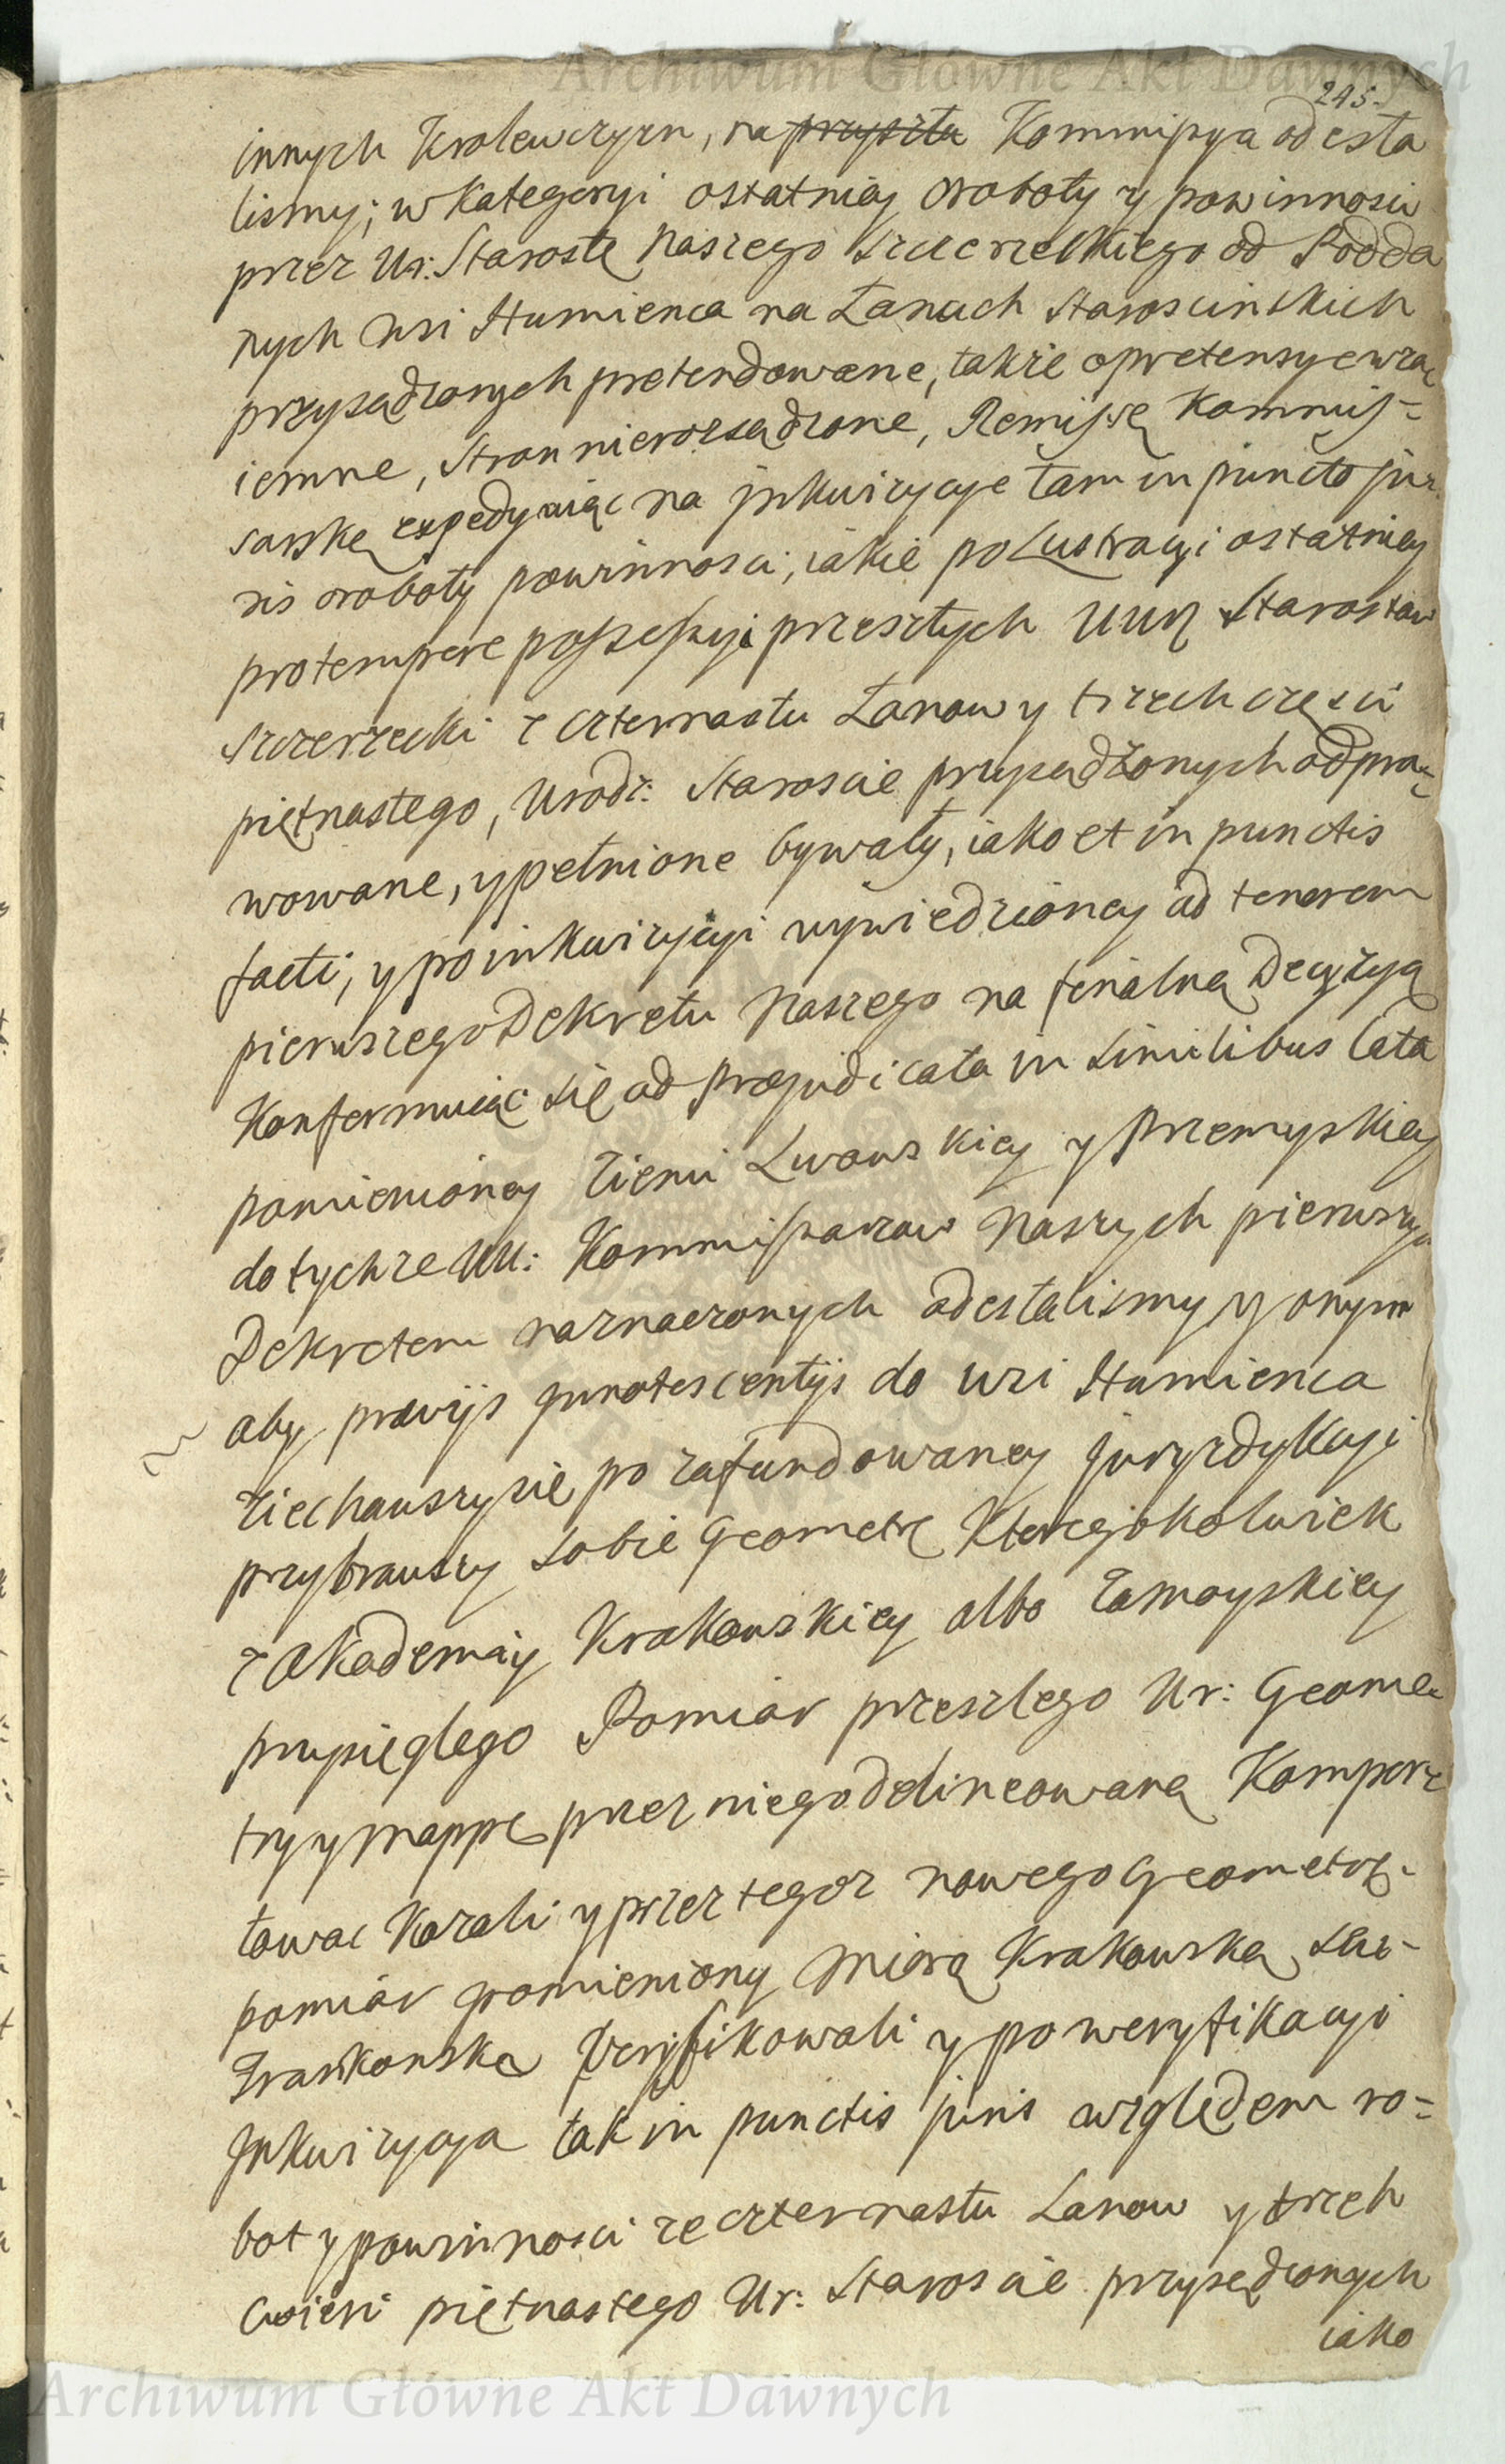 Archiwum Główne Akt Dawnych
245.
innych Krolewczyzn, na przyszła Kommissya odesła
lismy; w Kategoryi ostatniey o roboty y powinnosci
przez Ur: Starostę Naszego Szczerzeckiego od Podda
nych wsi Humienca na Łanach Staroscinskich
przysądzonych pretendowane, także o pretensye wza
iemne, Stron nierozsądzone, Remissę Kommis=
sarską expedyuiąc na inkwizycye tam in puncto ju
ris o roboty powinnosci, iakie po Lustracyi ostatniey
pro tempore possessyi przeszłych UUr Starostow
Szczerzecki z czternastu Łanow y trzech częsci
piętnastego, Urodz: Staroscie przysadzonych odpra=
wowane, y pełnione bywały, iako et in punctis
facti, y po inkwizycyi wywiedzioney ad tenorem
pierwszego Dekretu Naszego na finalną Decyzyą
Konformuiąc się ad præjudicata in similibus lata
pomienioney Ziemi Lwowskiey y Przemyskiey
do tychze UU: Kommissarzow Naszych pierwszym
Dekretem naznaczonych odesłalismy y onym
aby prævijs innotescentijs do wsi Humienca
ziechawszy się po zafundowaney Juryzdykcyi
przybrawszy sobie Geometrę Ktoregokolwiek
z Akademij Krakowskiey albo Zamoyskiey
przysięgłego Pomiar przeszłego Ur: Geome
try y mappę przez niego delineowaną Kompor
tować Kazali y przez tegoz nowego Geometrę
pomiar pomieniony miarą Krakowską sta=
Frankonską Veryfikowali y po weryfikacyi
Inkwizycya tak in punctis juris względem ro=
bot y powinnosci ze czternastu Łanow y trzech
cwierci piętnastego Ur: Staroscie przysądzonych
iako
Archiwum Główne Akt Dawnych